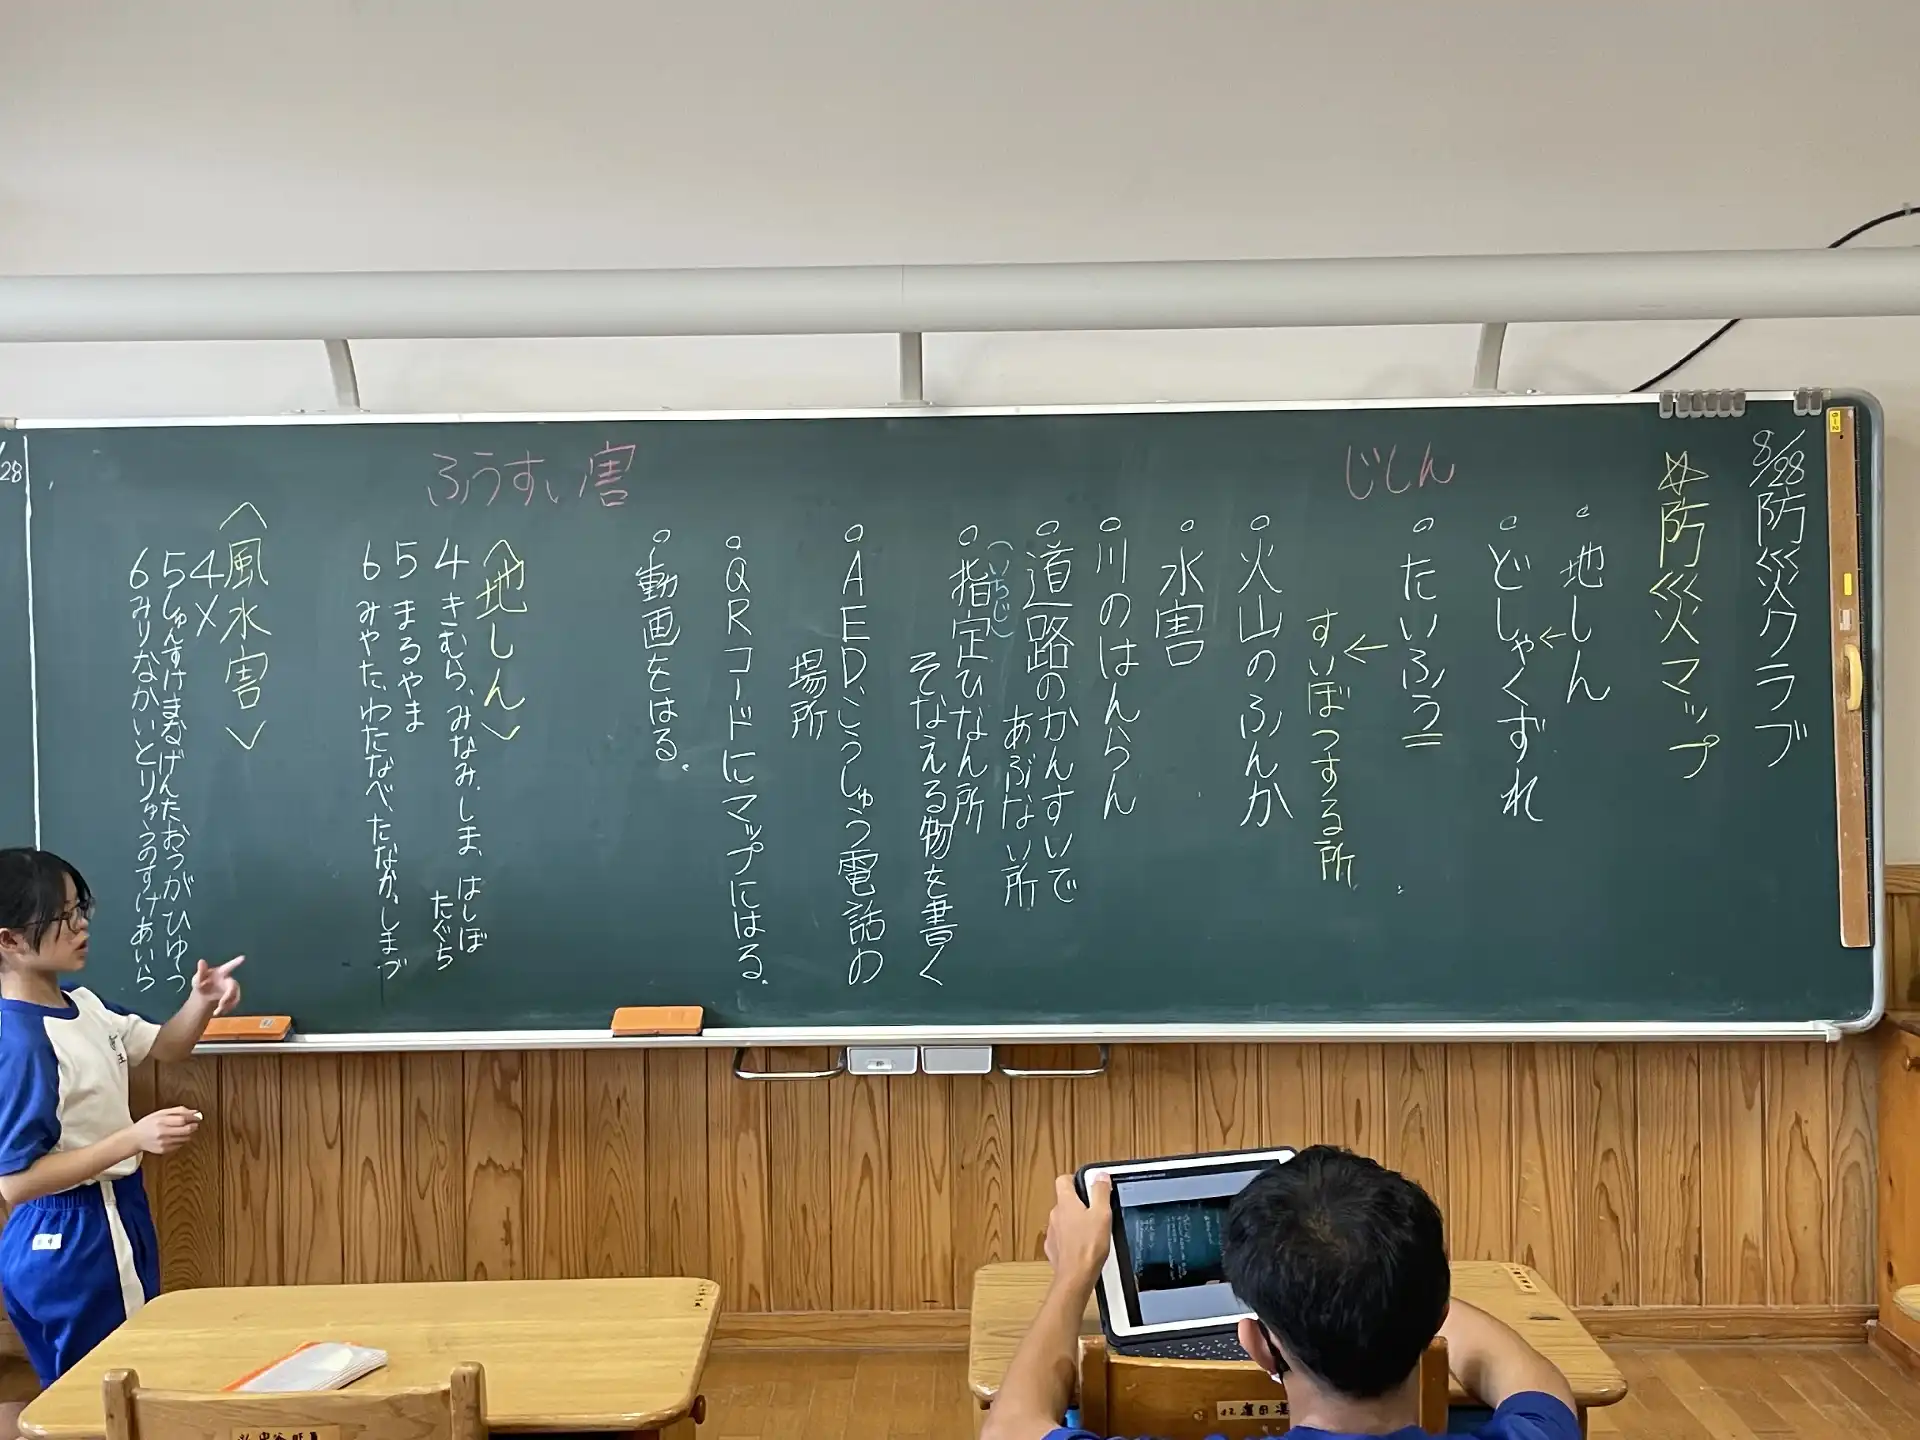 8/28防災クラブ
防災マップ
じしん
。地しん
。どしゃくずれ
←
。たいふう
←
すいぼつする所
。火山のふんか
。水害
。川のはんらん
。道路のかんすいで
あぶない所
(いちじ)
。指定ひなん所
そなえる物を書く
。AED、こうしゅう電話の
場所
。QRコードにマップにはる。
。動画をはる。
ふうすい害
〈地しん〉
4 きむら、みなみ、しま、はしぼ
たぐち
5 まるやま
6 みやた、わたなべ、たなか、しまづ
〈風水害〉
4 X
5しゅんすけまなげんたおうがひゆう
6みりなかいとりゅうのすけあいら
28